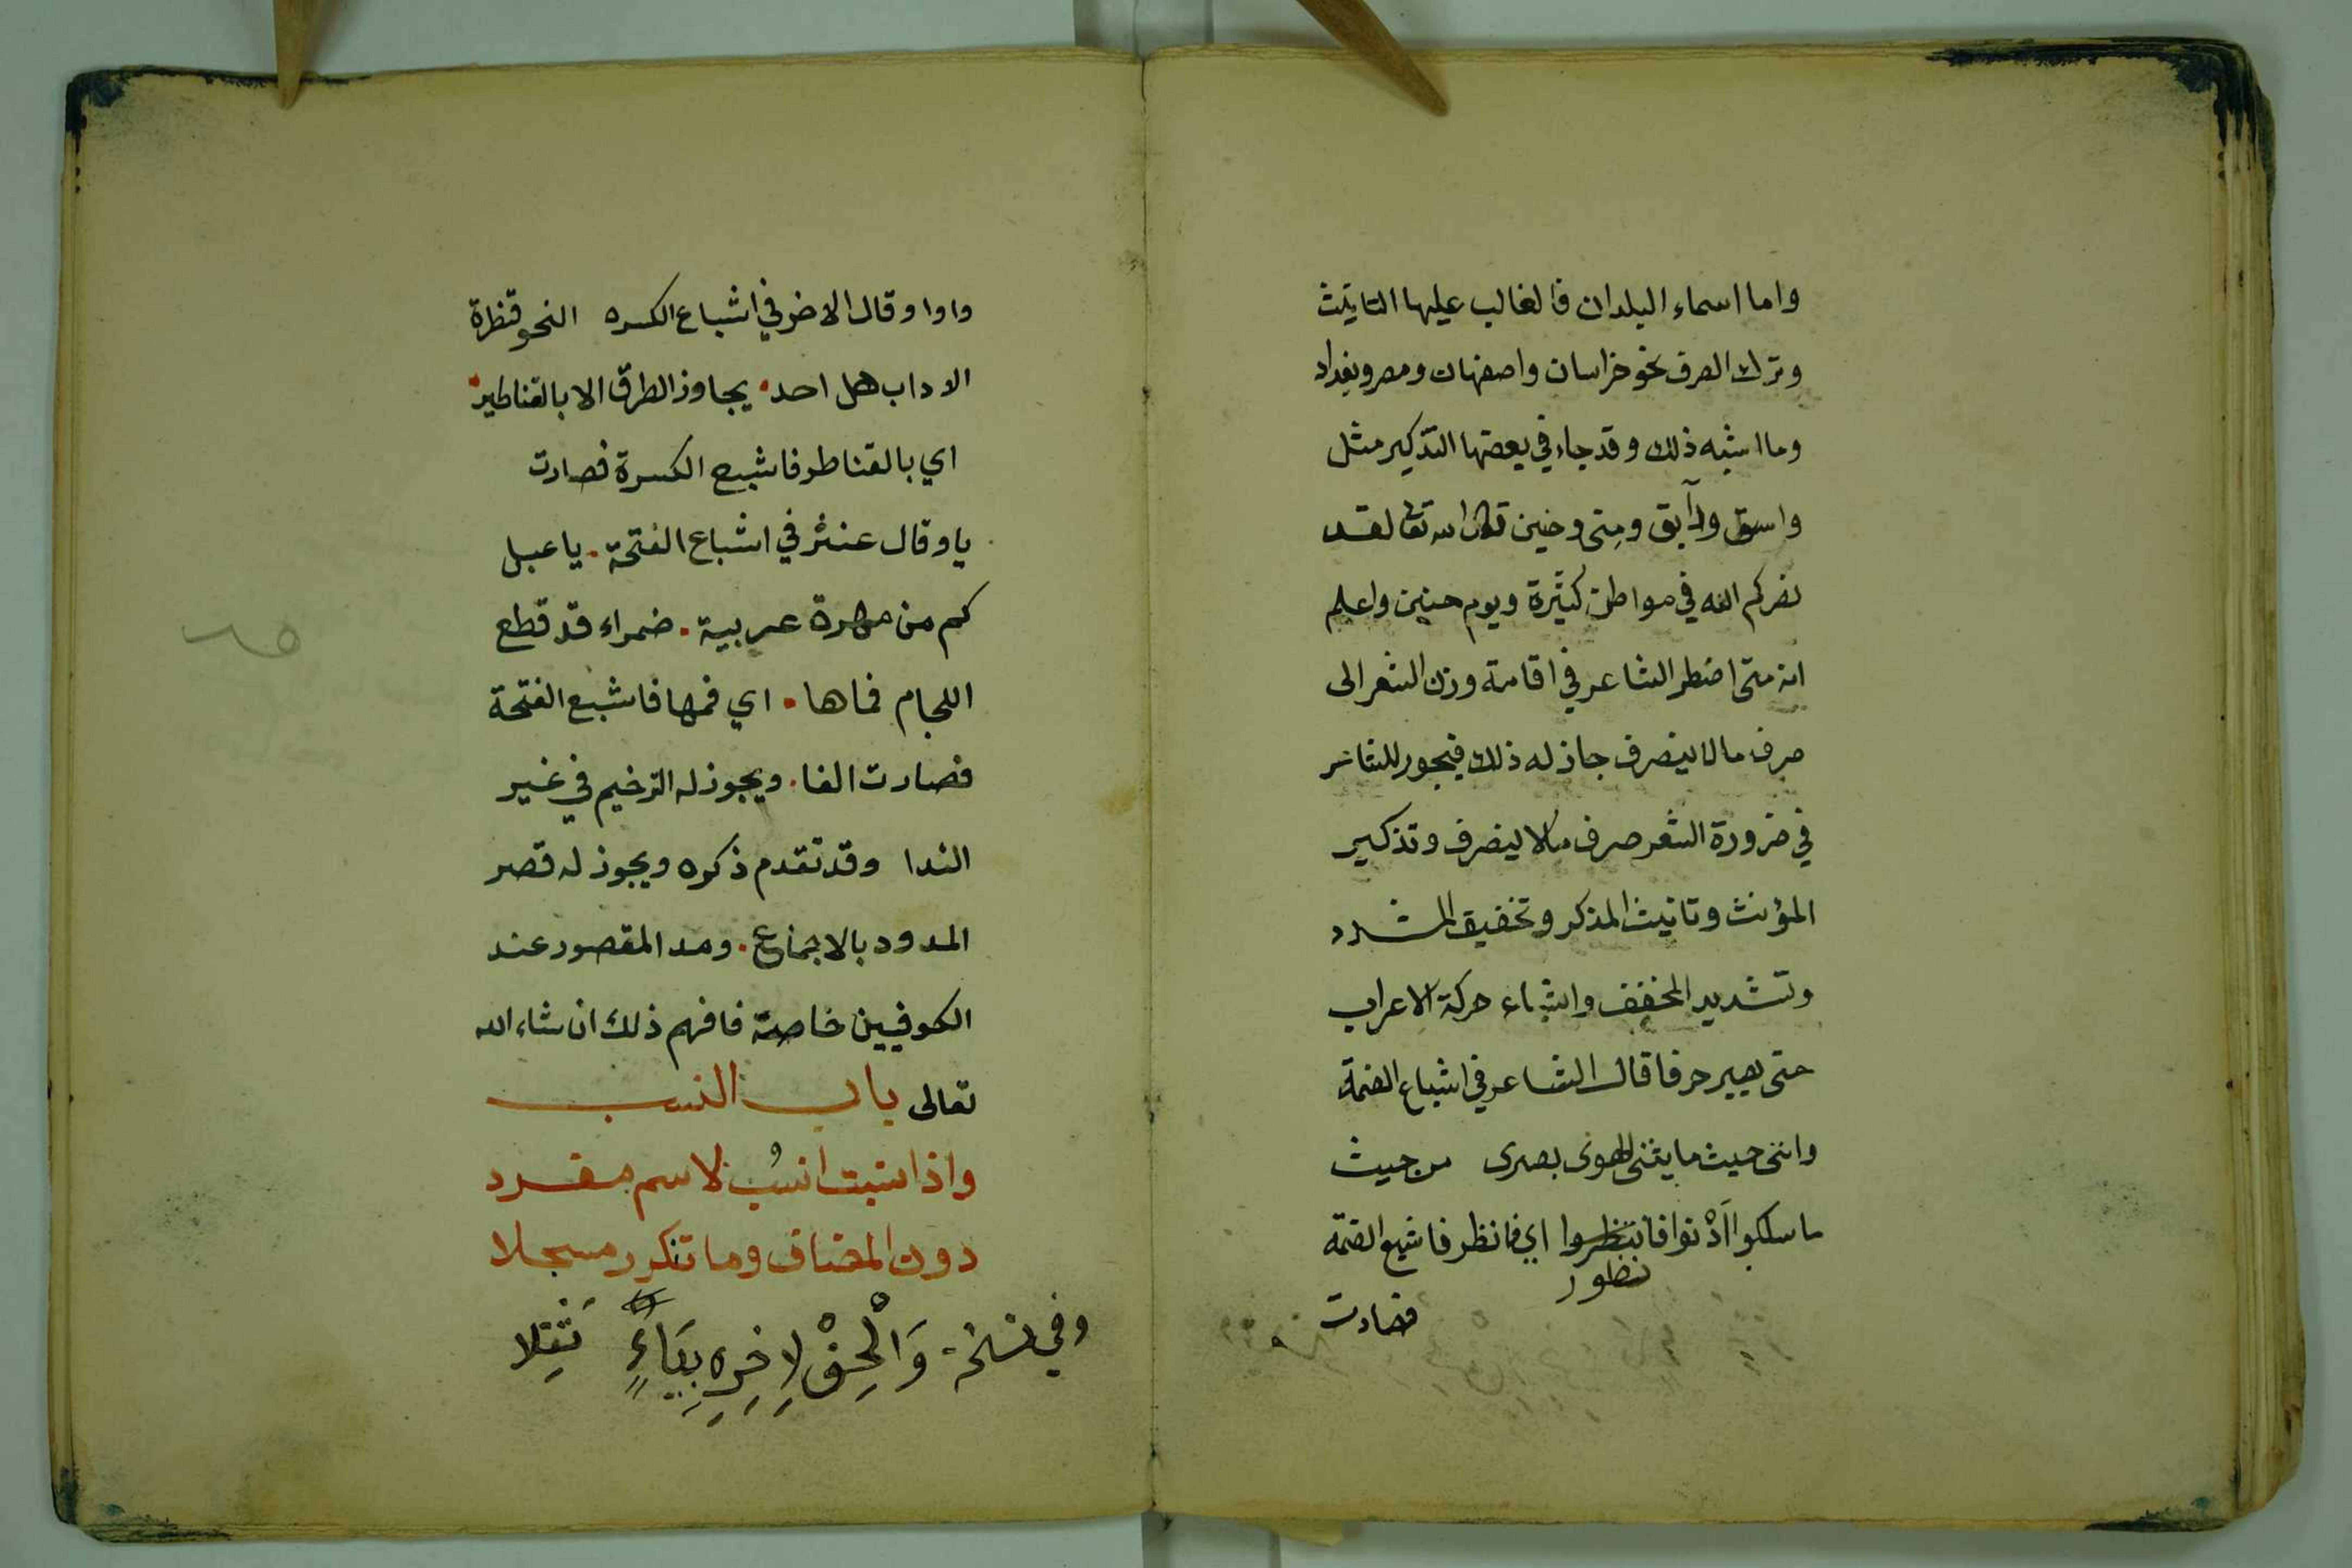 واما اسماء البلدان فالغالب عليها التانيث
وترك الصرف نحو خراسان واصفهان ومصر وبغداد
وما اشبه ذلك وقد جاء في بعضها التذكير مثل
واسق ودآبق ومنى وحنين قال الله تعالى لقد
نصركم الله في مواطن كثيرة ويوم حنين واعلم
انه متى اضطر الشاعر في اقامة وزن الشعر الى
صرف مالا ينصرف جاز له ذلك فيجوز للشاعر
في ضرورة الشعر صرف مالا ينصرف وتذكير
المؤنث وتانيث المذكر وتخفيف المشدد
وتشديد المخفف واشباع حركة الاعراب
حتى يصير حرفا قال الشاعر في اشباع الضمة
وانني حيث ما يثنى الهوى بصرى من حيث
ما سلكوا اَدْنوا فانظروا اي فانظر فاشبع الضمة
نظور
فصارت
واوا وقال الاخر في اشباع الكسره النحو قنظرة
الاداب هل احد. يجاوز الطرق الا بالقناطير.
اي بالقناطر فاشبع الكسرة فصارت
يا وقال عنتر في اشباع الفتحة. يا عبل
كم من مهرة عربية. ضمراء قد قطع
اللجام فماها. اي فمها فاشبع الفتحة
فصارت الفا. ويجوز له الترخيم في غير
الندا وقد تقدم ذكره ويجوز له قصر
المدود بالاجماع. ومد المقصور عند
الكوفيين خاصة فافهم ذلك ان شاء الله
تعالى باب النسب
واذا نسبت انسُب لاسم مفرد
دون المضاف وما تنكرر مسجلا
وفي نسخة وَالْحِقْ لِاخِرِهِ بِيَاءٍ تَثْقِلا